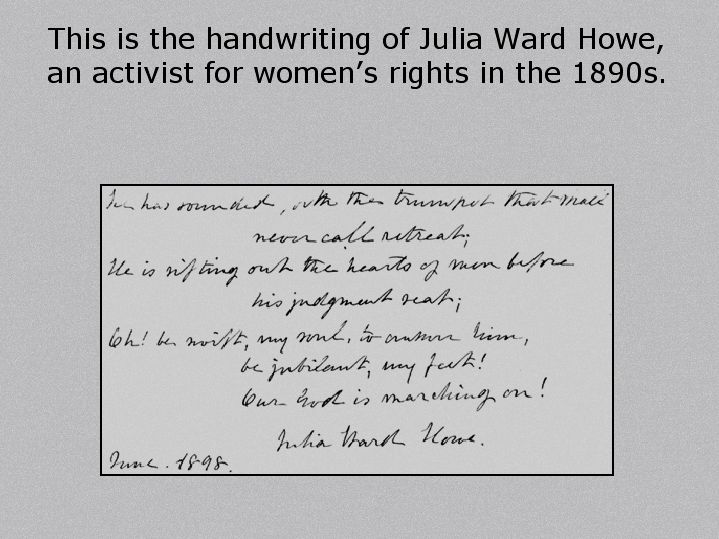 This is the handwriting of Julia Ward Howe,
an activist for women’s rights in the 1890s.
He has sounded, with the trumpet that shall
never call retreat;
He is sifting out the hearts of men before
his judgment seat;
Oh! be swift, my soul, to answer him,
be jubilant, my feet!
Our God is marching on!
Julia Ward Howe.
June. 1898.